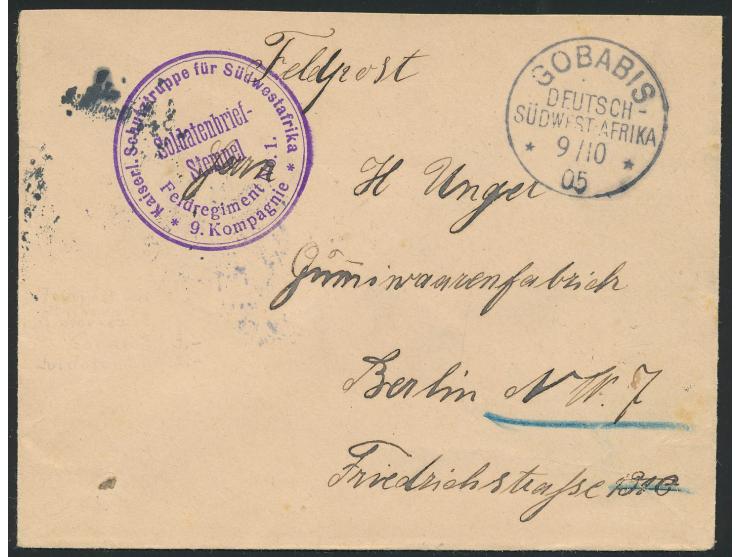 Feldpost
Kaiserl. Schutztruppe für Südwestafrika
Soldatenbrief-
Stempel
Feldregiment No. 1.
* 9. Kompagnie *
GOBABIS
DEUTSCH-
SÜDWEST-AFRIKA
* 9/10 *
05
Herrn
H Unger
Gum̄iwaarenfabrich
Berlin N W. 7
Friedrichstrasse